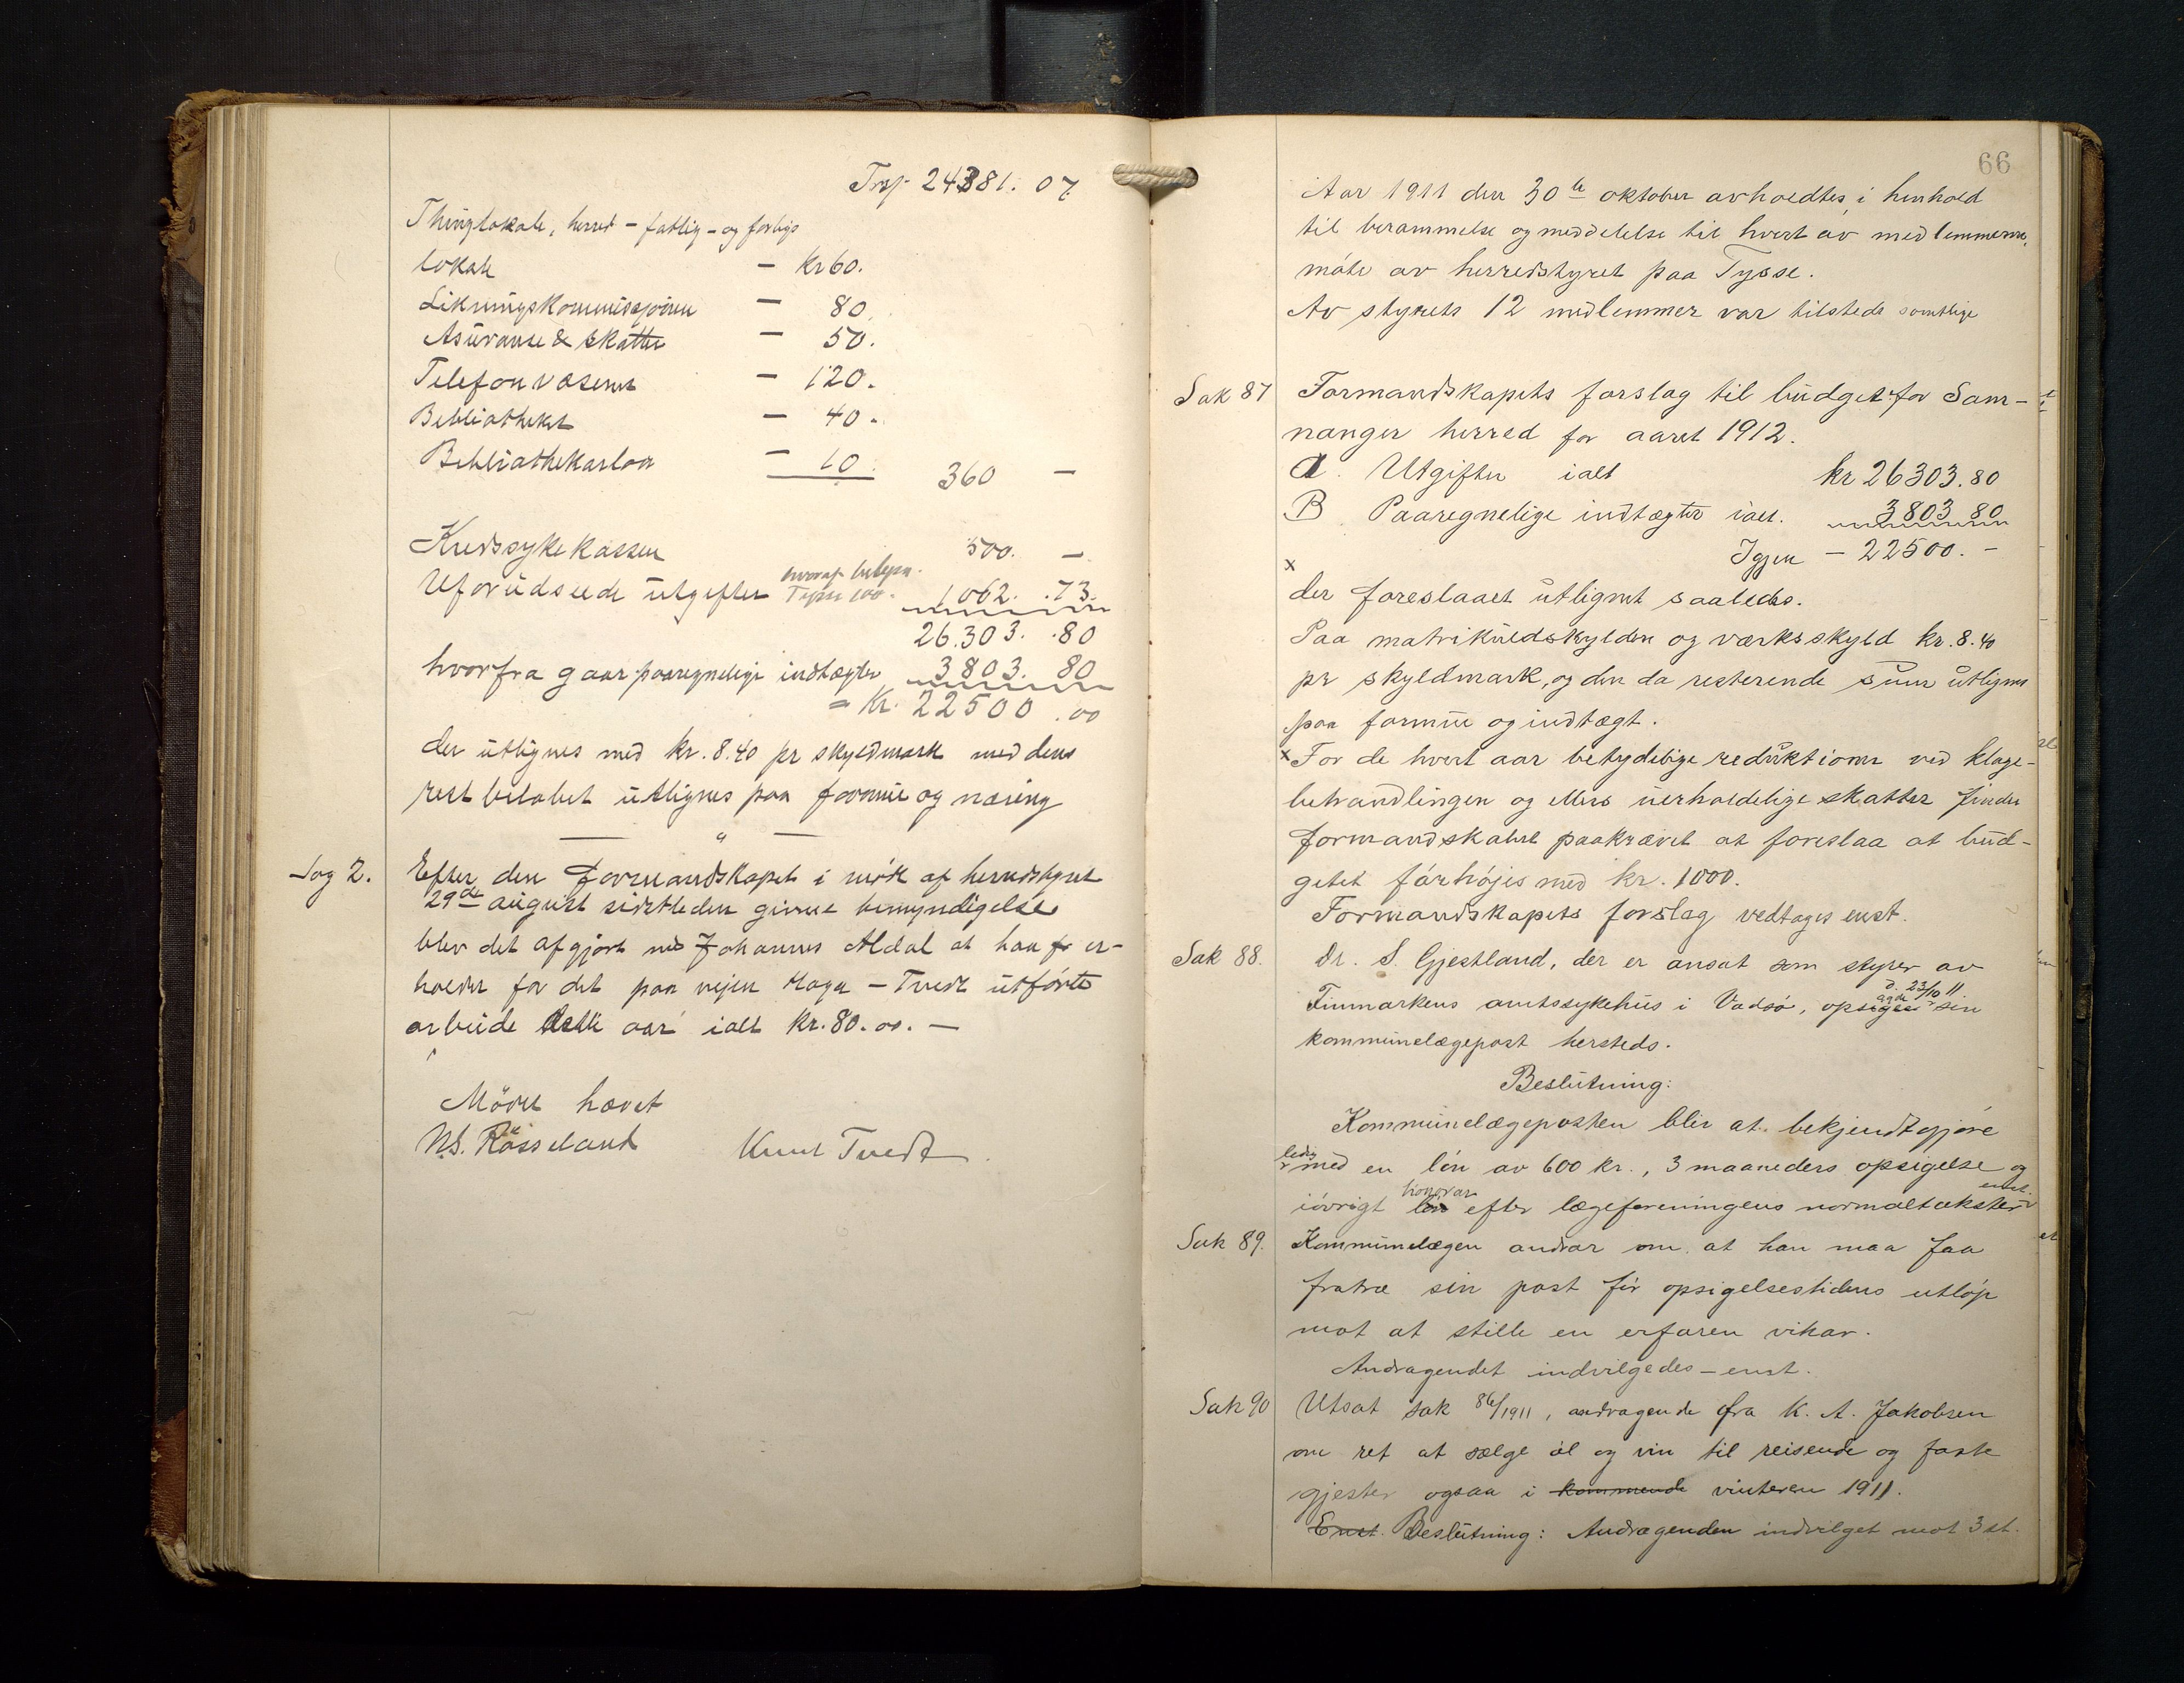 Trsp. 24381. 07.
Thinglokale, herred - fattig - og forligs
lokale — kr 60.
Likningskommissjonen — 80.
Asurance & skatter — 50.
Telefonvæsenet — 120.
Bibliotheket — 40.
Bibliothekarløn — 10. 360 —
Kredssykekassen 500. —
hvoraf belysn.
Uforudseede utgifter Tysse 100. 1062. .73.
26.303. .80
hvorfra gaar paaregnelige indtægter 3803. 80
= Kr. 22500 .00
der utlignes med kr. 8.40 pr skyldmark med dens
restbeløbet utlignes paa formue og næring
— " —
Sag 2.
Efter den Formandskapet i møte af herredstyret
29de august sidstleden givne bemyndigelse
blev det afgjort med Johannes Aldal at han er-
holder for det paa vejen Haga - Tvedt utførte
arbeide dette aar ialt kr. 80.00. —
Mödet hævet
N.S. Røsseland Knut Tvedt
66
Aar 1911 den 30te oktober avholdtes, i henhold
til berammelse og meddelelse til hvert av medlemmerne,
møte av herredstyret paa Tysse.
Av styrets 12 medlemmer var tilstede samtlige
Sak 87 Formandskapets forslag til budget for Sam-
nanger herred for aaret 1912.
A. Utgifter ialt kr 26303.80
B Paaregnelige indtægter ialt. 3803 80
Igjen — 22500. —
x
der foreslaaet utlignet saaledes.
Paa matrikuldskylden og værksskyld kr. 8.40
pr skyldmark, og den da resterende sum utlignes
paa formue og indtægt.
x For de hvert aar betydelige reduktioner ved klage-
behandlingen og ellers uerholdelige skatter finder
formandskabet paakrævet at foreslaa at bud-
getet förhöjes med kr. 1000.
Formandskapets forslag vedtages enst.
Sak 88. Dr. S. Gjestland, der er ansat som styrer av
d. 23/10 11
Finmarkens amtssykehus i Vadsø, opsiges sin
kommunelægepost hersteds.
Beslutning:
Kommunelægeposten blir at bekjendtgjøre
ledig med en løn av 600 kr., 3 maaneders opsigelse og
honorar enst.
iøvrigt løn efter lægeforeningens normaltakster
Sak 89. Kommunelægen andrar om at han maa faa
fratræ sin post før opsigelsestidens utløp
mot at stille en erfaren vikar.
Andragendet indvilgedes - enst.
Sak 90 Utsat sak 86/1911, andragende fra K. A. Jakobsen
om ret at sælge øl og vin til reisende og faste
gjester ogsaa i kommende vinteren 1911.
Enst. Beslutning: Andragenden indvilget mot 3 st.